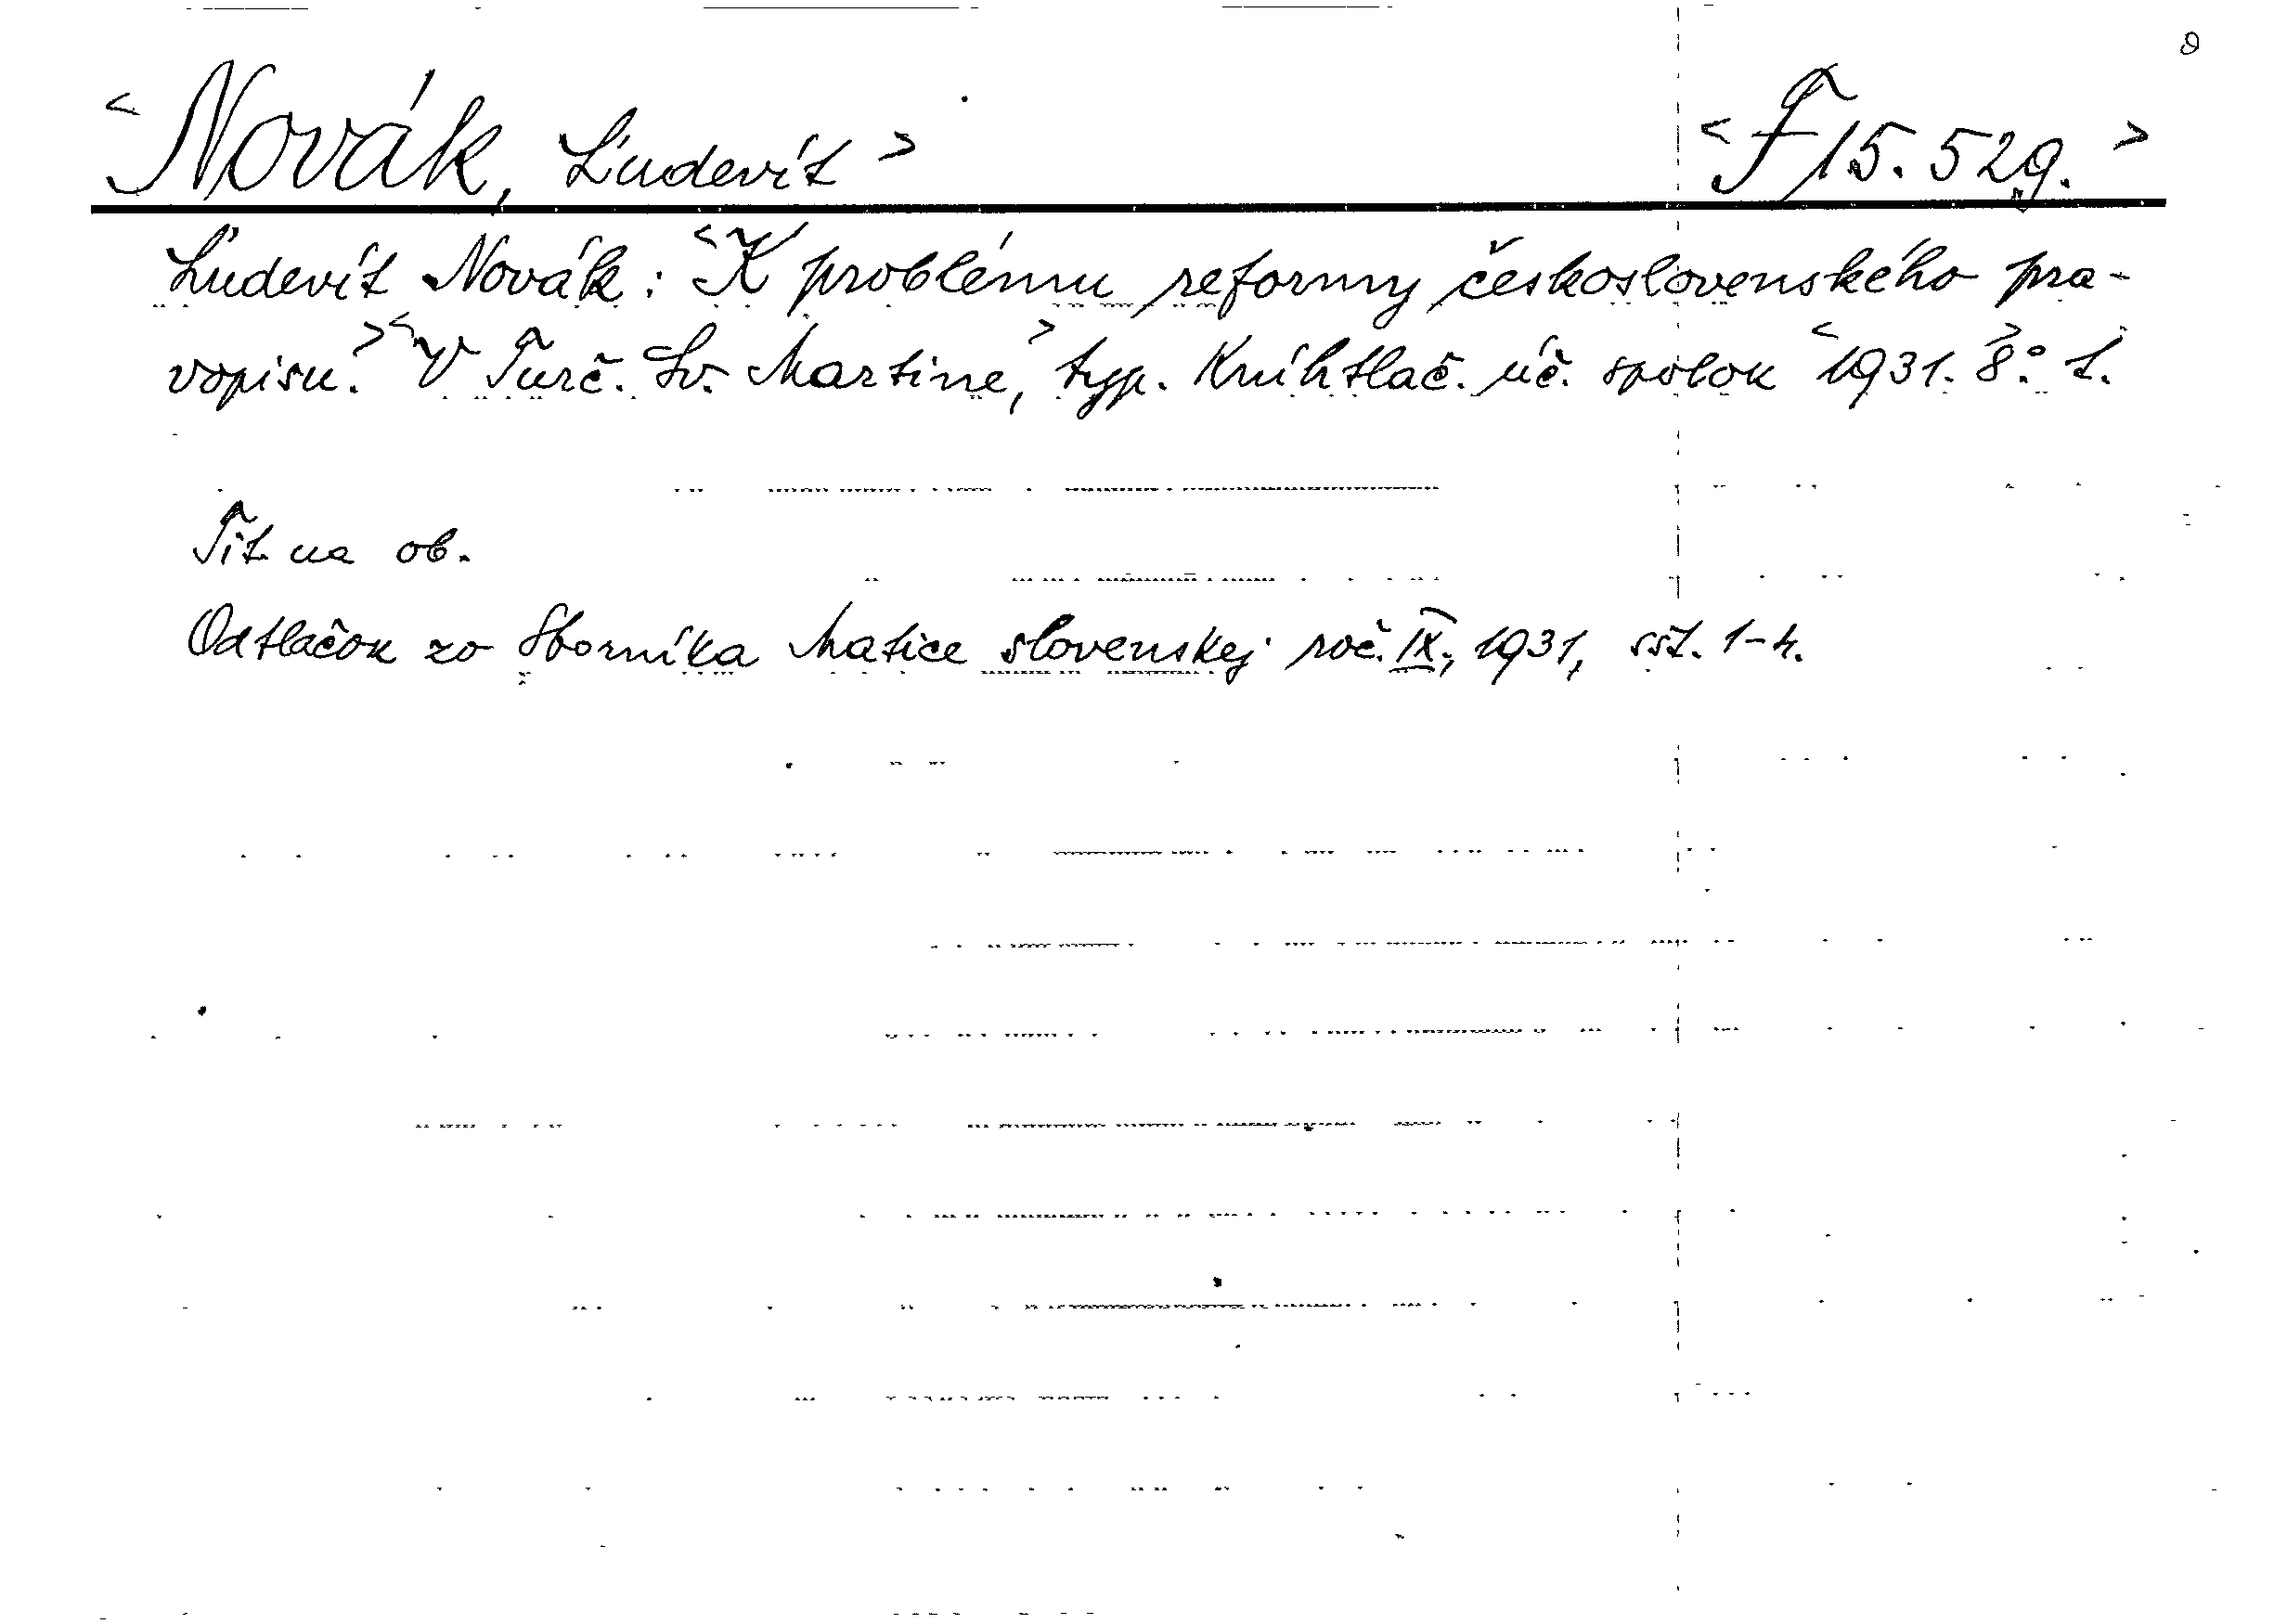 <Novák, Ľudevít> <F 15.529.>
Ľudevít Novák: <K problému reformy československého pra-
vopisu.> <V Turč. Sv. Martine,> typ. Kníhtlač. úč. spolok <1931.> 8°. 
Tit. na ob.
Odtlačok zo Sborníka Matice slovenskej roč. IX., 1931, sšt. 1-4.